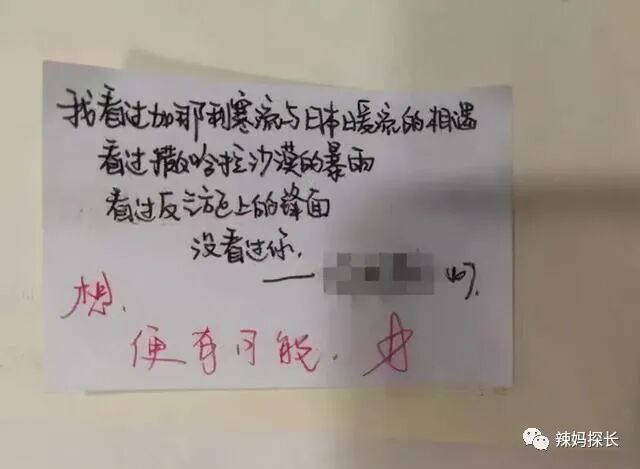 我看过加那利寒流与日本暖流的相遇
看过撒哈拉沙漠的暴雨
看过反上的锋面
没看过你.
——
想.
便有可能.
辣妈探长